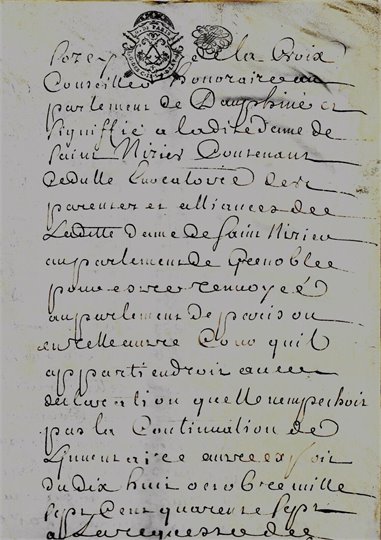 de la Croix
Conseiller honoraire au
parlement de Dauphiné et
signiffié a ladite dame de
Saint Nizier Contenant
Cedulle Evocatoire des
parentez et alliances de
Laditte dame de Saint Nizier
au parlement de Grenoble
pour estre renvoyé
au parlement de paris ou
en telle autre Cour quil
appartiendroit avec
declaration quelle nempechoit
pas la Continuation de
Linventaire autre exploit
du dix huit octobre mille
sept Cent quarente sept
a La requeste de